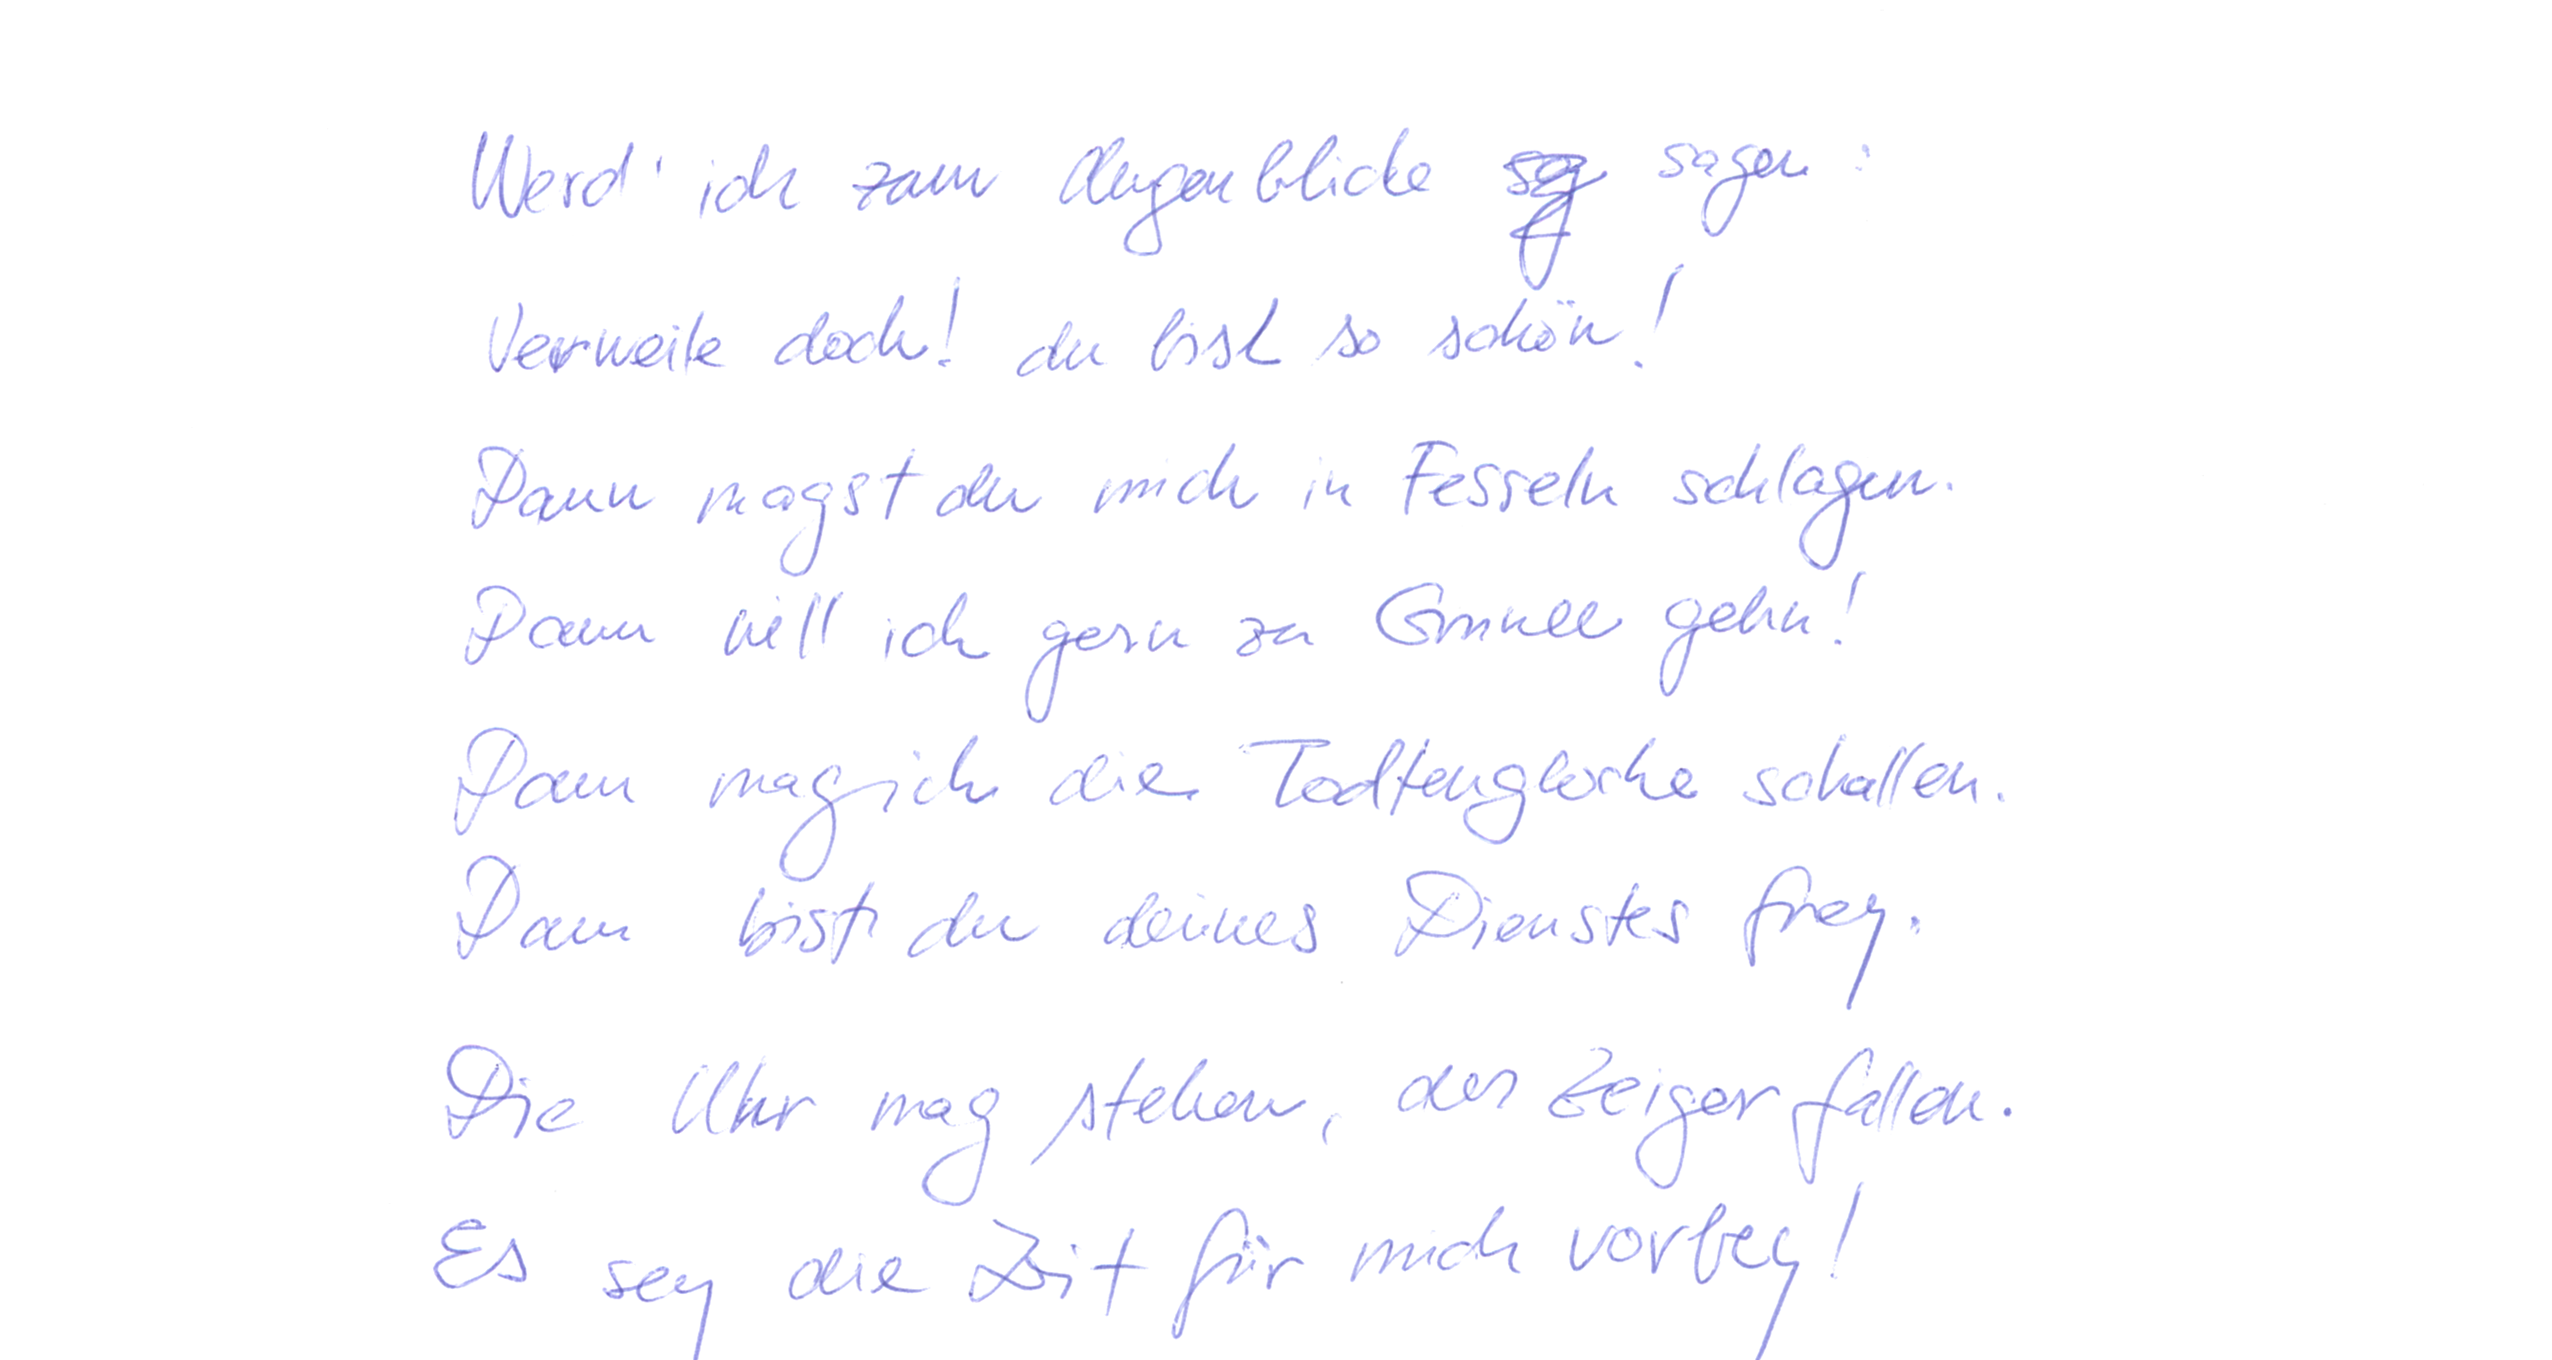 Werd' ich zum Augenblicke sagen:
Verweile doch! du bist so schön!
Dann magst du mich in Fesseln schlagen.
Dann will ich gern zu Grunde gehn!
Dann mag ich die Todtenglocke schallen.
Dann bist du deines Dienstes frey.
Die Uhr mag stehen, der Zeiger fallen.
Es sey die Zeit für mich vorbey!